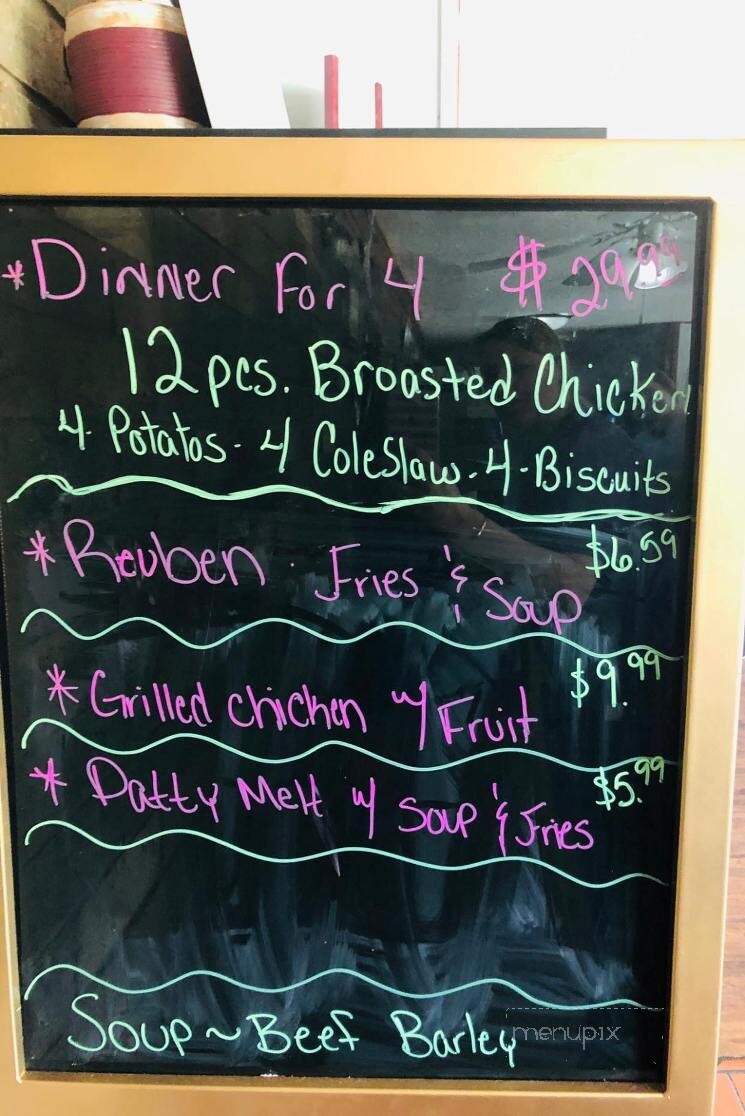 *Dinner For 4 $29.99
12 pcs. Broasted Chicken
4 Potatos - 4 Coleslaw - 4 - Biscuits
*Reuben . Fries & Soup $6.59
*Grilled chicken w/ Fruit $9.99
*Patty Melt w/ Soup & Fries $5.99
Soup ~ Beef Barley
menupix